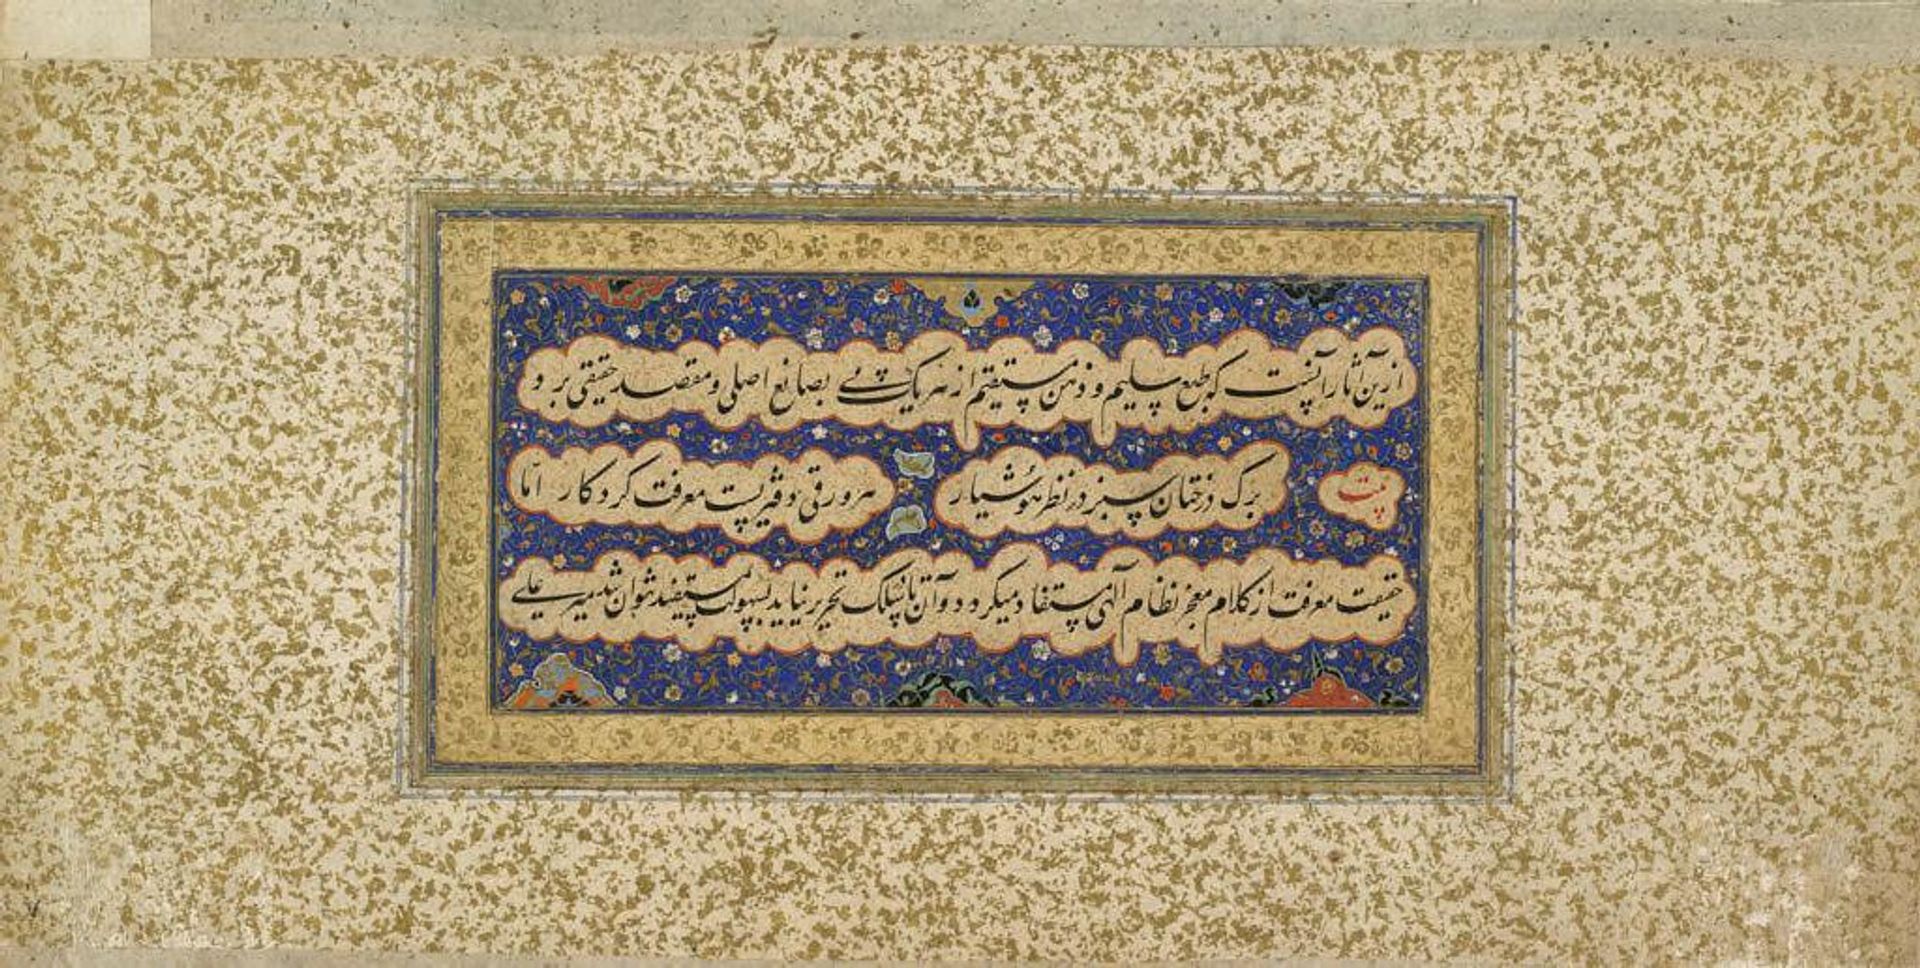 ازین آثار آنست که طبع سلیم و ذهن مستقیم از هر یک پی بصانع اصلی و مقصد حقیقی برد و
بیت برگ درختان سبز در نظر هوشیار هر ورقی دفتریست معرفت کردکار اما
حقیقت معرفت از کلام معجز نظام الهی مستفاد میکردد و آن تا بسلک تحریر نیاید بسهولت مستفید نتوان شد میر علی
٧